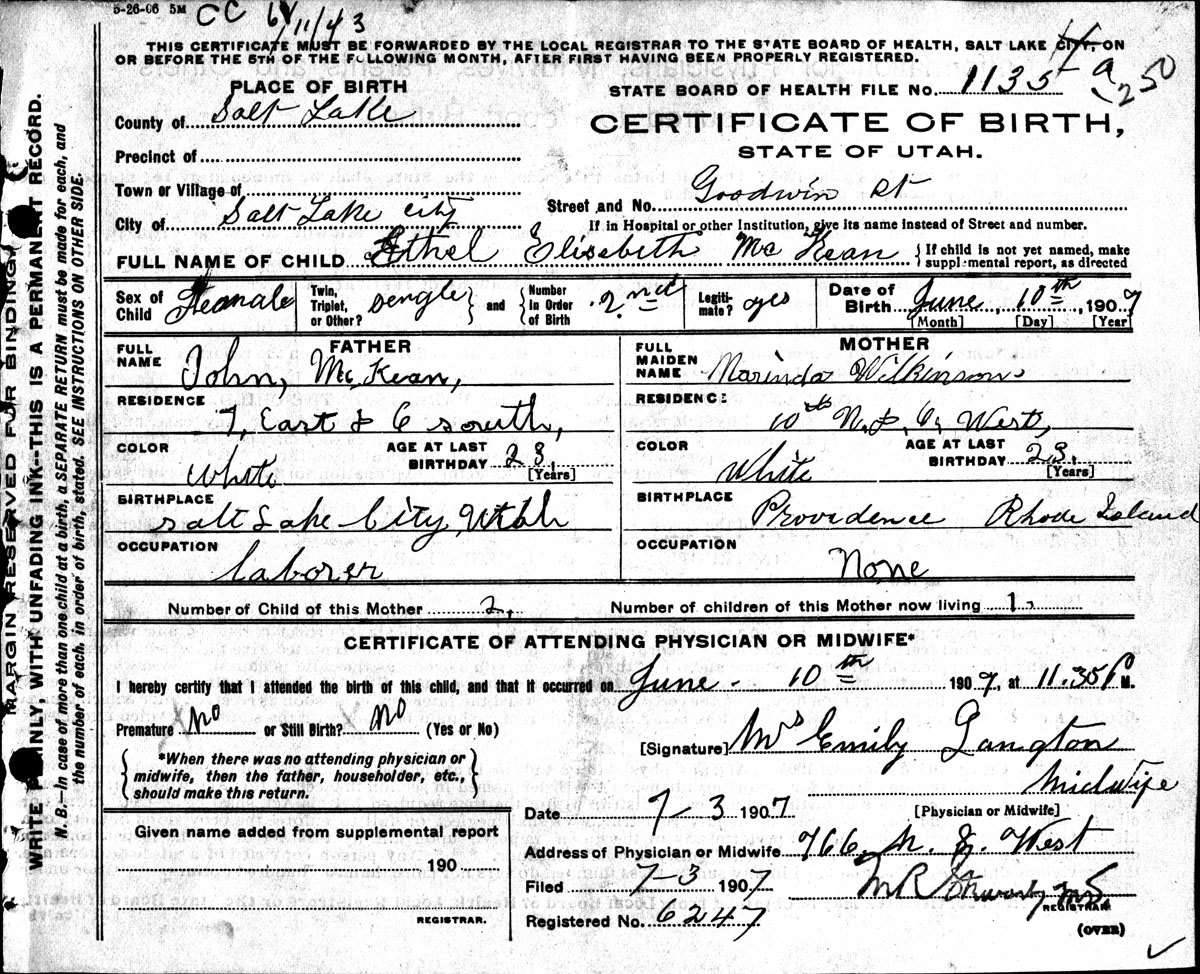 5-26-06 5M CC 6/11/43
THIS CERTIFICATE MUST BE FORWARDED BY THE LOCAL REGISTRAR TO THE STATE BOARD OF HEALTH, SALT LAKE CITY, ON
OR BEFORE THE 5TH OF THE FOLLOWING MONTH, AFTER FIRST HAVING BEEN PROPERLY REGISTERED.
PLACE OF BIRTH
STATE BOARD OF HEALTH FILE No. 1135 a 250
County of Salt Lake
CERTIFICATE OF BIRTH,
STATE OF UTAH.
Precinct of
Town or Village of
Street and No. Goodwin St
City of Salt Lake City
If in Hospital or other Institution, give its name instead of Street and number.
FULL NAME OF CHILD Ethel Elisebeth Mc Kean
{ If child is not yet named, make
supplemental report, as directed
Sex of Child Feamale
Twin, Triplet, or Other? sengle } and { Number in Order of Birth 2nd
Legiti-mate? yes
Date of Birth June 10th, 1907
[Month] [Day] [Year]
FATHER
FULL NAME John, Mc Kean,
RESIDENCE 7, East & 6 south,
COLOR White
AGE AT LAST BIRTHDAY 23, [Years]
BIRTHPLACE
Salt Lake City, Utah
OCCUPATION
laborer
MOTHER
FULL MAIDEN NAME Marinda Wilkinson
RESIDENCE 10th N. & 6, West,
COLOR White
AGE AT LAST BIRTHDAY 23, [Years]
BIRTHPLACE
Providence Rhode Island
OCCUPATION
None
Number of Child of this Mother 2,
Number of children of this Mother now living 1,
CERTIFICATE OF ATTENDING PHYSICIAN OR MIDWIFE*
I hereby certify that I attended the birth of this child, and that it occurred on June - 10th 1907, at 11.35 P M.
Premature No or Still Birth? No (Yes or No)
[Signature] Mrs Emily Langton
Midwife
[Physician or Midwife]
{ *When there was no attending physician or
midwife, then the father, householder, etc.,
should make this return. }
Date 7-3 1907
Given name added from supplemental report
190
REGISTRAR.
Address of Physician or Midwife 766, N. 8. West
Filed 7-3 1907
REGISTRAR.
Registered No. 6247
(OVER)
MARGIN RESERVED FOR BINDING.
WRITE PLAINLY, WITH UNFADING INK--THIS IS A PERMANENT RECORD.
N. B.—In case of more than one child at a birth, a SEPARATE RETURN must be made for each, and
the number of each, in order of birth, stated. SEE INSTRUCTIONS ON OTHER SIDE.